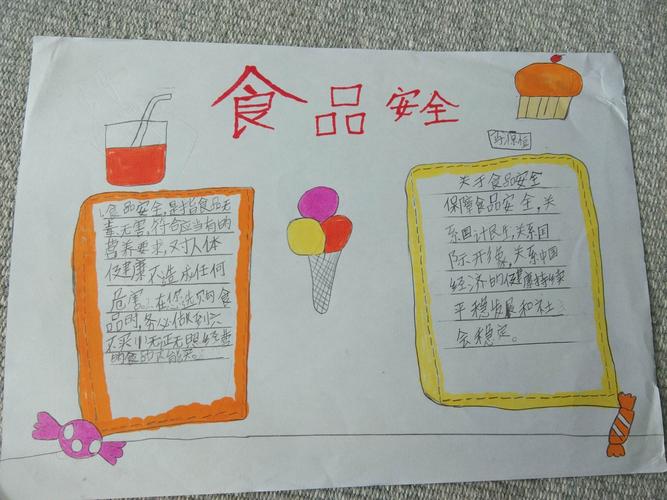 食品安全
1.食品安全,是指食品无
毒无害,符合应当有的
营养要求,对人体
健康不造成任何
危害。在你选购食
品时,务必做到六
不买
关于食品安全
保障食品安全,关
系国计民生,关系国
际形象,关系中国
经济的健康持续
平稳发展和社
会稳定。